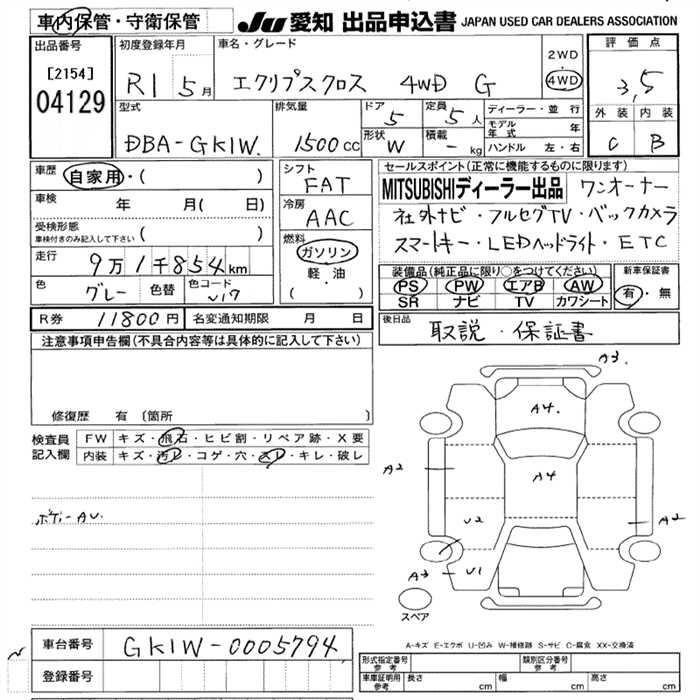 車内保管・守衛保管
JU 愛知 出品申込書 JAPAN USED CAR DEALERS ASSOCIATION
出品番号
[2154]
04129
初度登録年月
R1 5月
車名・グレード
エクリプスクロス 4WD G
2WD
・
4WD
評価点
3,5
外装 内装
C B
型式
DBA-GK1W.
排気量
1500cc
ドア
5
形状
W
定員
5人
積載
- kg
ディーラー・並行
モデル年式 年
ハンドル 左・右
車歴
自家用・( )
車検 年 月( 日)
受検形態
車検付きのみ記入して下さい ( )
走行 9万1千854km
色 グレー 色替 色コード U17
シフト
FAT
冷房
AAC
燃料
ガソリン
軽・油
( )
セールスポイント(正常に機能するものに限ります)
MITSUBISHIディーラー出品 ワンオーナー
社外ナビ・フルセグTV・バックカメラ
スマートキー・LEDヘッドライト・ETC
装備品(純正品に限り○をつけてください)
PS PW エアB AW
SR ナビ TV カワシート
新車保証書
有・無
R券 11800円 名変通知期限 月 日
後日品 取説・保証書
注意事項申告欄(不具合内容等は具体的に記入して下さい)
修復歴 有 〔箇所
検査員
記入欄
FW キズ・飛石・ヒビ割・リペア跡・X要
内装 キズ・汚レ・コゲ・穴・スレ・キレ・破レ
ボデーAU.
A3.
A4.
A2
A4
U2
A2
A3
U1
スペア
A-キズ E-エクボ U-凹み W-補修跡 S-サビ C-腐食 XX-交換済
車台番号 GK1W-0005794
登録番号
形式指定番号
参考
類別区分番号
参考
車庫証明用
参考
長さ cm 幅 cm 高さ cm